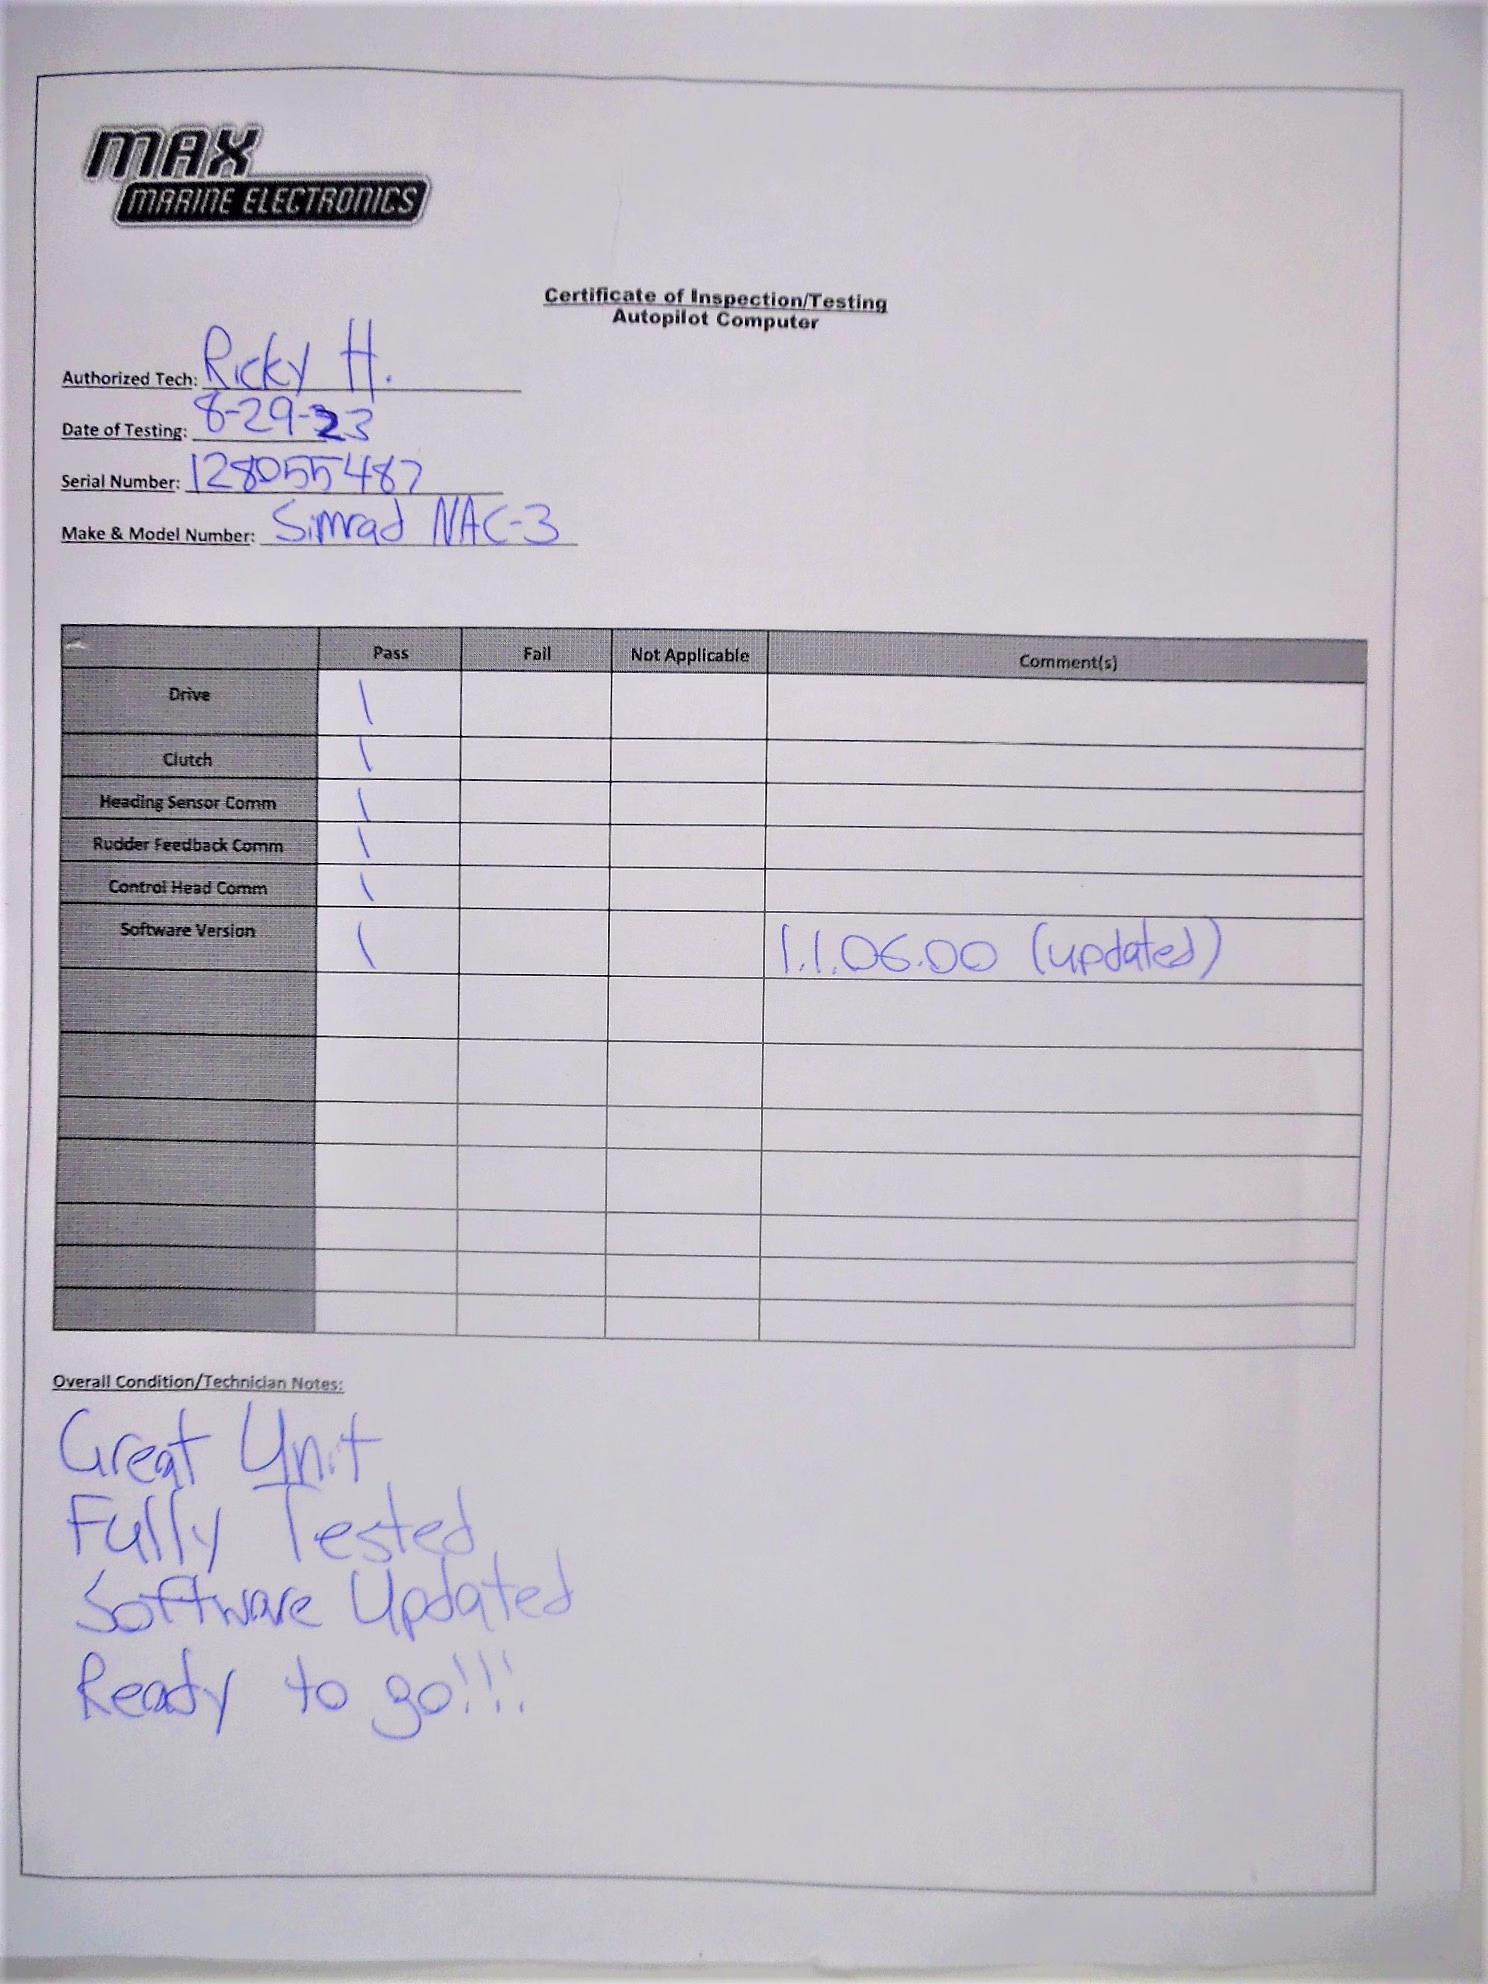 MAX
MARINE ELECTRONICS
Certificate of Inspection/Testing
Autopilot Computer
Authorized Tech: Ricky H.
Date of Testing: 8-29-23
Serial Number: 128055487
Make & Model Number: Simrad NAC-3
Pass Fail Not Applicable Comment(s)
Drive \
Clutch \
Heading Sensor Comm \
Rudder Feedback Comm \
Control Head Comm \
Software Version \ 1.1.06.00 (updated)
Overall Condition/Technician Notes:
Great Unit
Fully Tested
Software Updated
Ready to go!!!